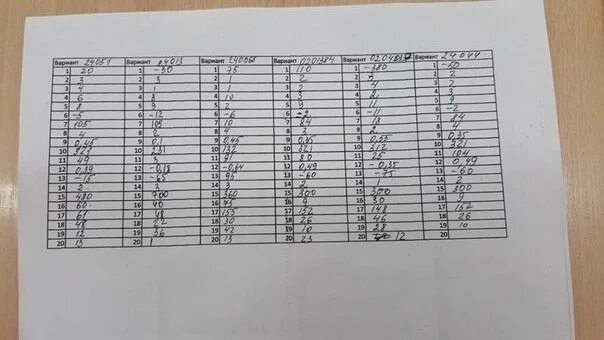 Вариант 24051 Вариант 84013 Вариант 240068 Вариант 0201384 Вариант Вариант 24044
1 20 1 -30 1 75 1 110 1 -380 1 -50
2 3 2 3 2 1 2 2 2 3 2 2
3 4 3 1 3 3 3 4 3
4 6 4 4 10 4 4 4
5 8 5 9 5 2 5 9 5 11 5
6 -5 6 -12 6 -6 6 -2 6 -11 6 -2
7 105 7 105 7 10 7 84 7 18 7 84
8 4 8 2 8 4 8 3 8 2 8 4
9 0,45 9 0,1 9 0,45 9 0,35 9 0,55 9 0,35
10 321 10 231 10 132 10 321 10 312 10 321
11 49 11 3 11 91 11 80 11 25 11 104
12 0,39 12 -0,18 12 -0,64 12 0,49 12 -0,35 12 0,49
13 -15 13 -65 13 45 13 -60 13 -75 13 -60
14 2 14 3 14 3 14 2 14 14 2
15 480 15 700 15 360 15 300 15 300 15 300
16 60 16 40 16 75 16 9 16 30 16 9
17 17 48 17 155 17 152 17 148 17 152
18 48 18 22 18 30 18 26 18 46 18 26
19 12 19 36 19 42 19 10 19 28 19 10
20 13 20 1 20 13 20 23 20 12 20